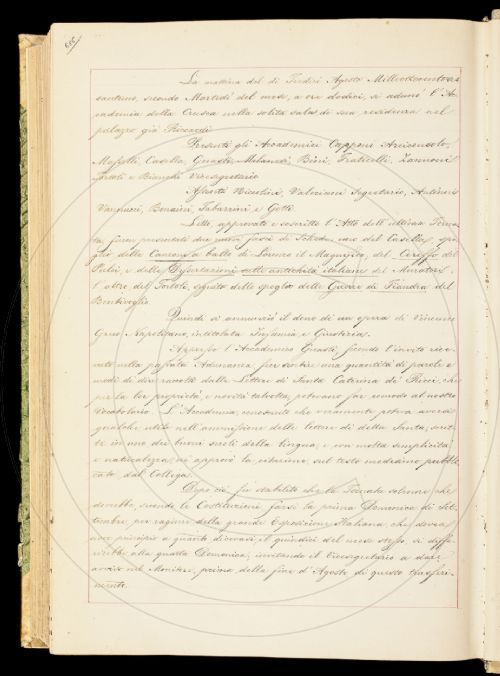 La mattina del dì Tredici Agosto Milleottocentoses
santuno, secondo Martedì del mese, a ore dodici, si adunò l'Ac
cademia della Crusca nella solita sala di sua residenza nel
palazzo già Riccardi.
Presenti gli Accademici Capponi Arciconsolo,
Casella, Guasti, Milanesi, Bini, Fraticelli, Zannoni
e Bianchi Vicesegretario
Assenti Nicolini, Valeriani Segretario,
Vannucci, Bonaini, Tabarrini, e Gotti.
Letto, approvato e soscritto l'Atto dell'ultima Torna
ta, furon presentati due nuovi fasci di Schede, uno del Casella, spo
glio delle Canzoni a ballo di Lorenzo il Magnifico, del Ciriffo del
Pulci, e delle Dissertazioni sulle antichità italiane del Muratori,
l'altro del Tortoli, seguito dello spoglio delle Guerre di Fiandra del
Bentivoglio
Quindi si annunziò il dono di un'opera di Vincenzo
Napolitano, intitolata Infamia e Giustizia.
Appresso l'Accademico Guasti, secondo l'invito rice-
vuto nella passata Adunanza, fece sentire una quantità di parole e
modi di dire raccolti dalle Lettere di Santa Caterina de' Ricci, che
per la lor proprietà, e novità talvolta, potevano far comodo al nostro
Vocabolario. L'Accademia, conoscendo che veramente poteva avere
qualche utile nell'ammissione delle lettere di detta Santa, scrit
te in uno dei buoni secoli della lingua, e con molta semplicità
e naturalezza, ne approvò la citazione, sul testo medesimo pubbli
cato dal Collega.
Dopo ciò fu stabilito che la Tornata solenne, che
dovrebbe, secondo le Costituzioni farsi la prima Domenica di Set-
tembre, per ragione della grande Esposizione Italiana, che dovrà
aver principio a quanto dicevasi il quindici del mese stesso, si diffe
rirebbe alla quarta Domenica, invitando il Vicesegretario a dare
avviso nel Monitore, prima della fine d'Agosto di questo trasferi-
mento.